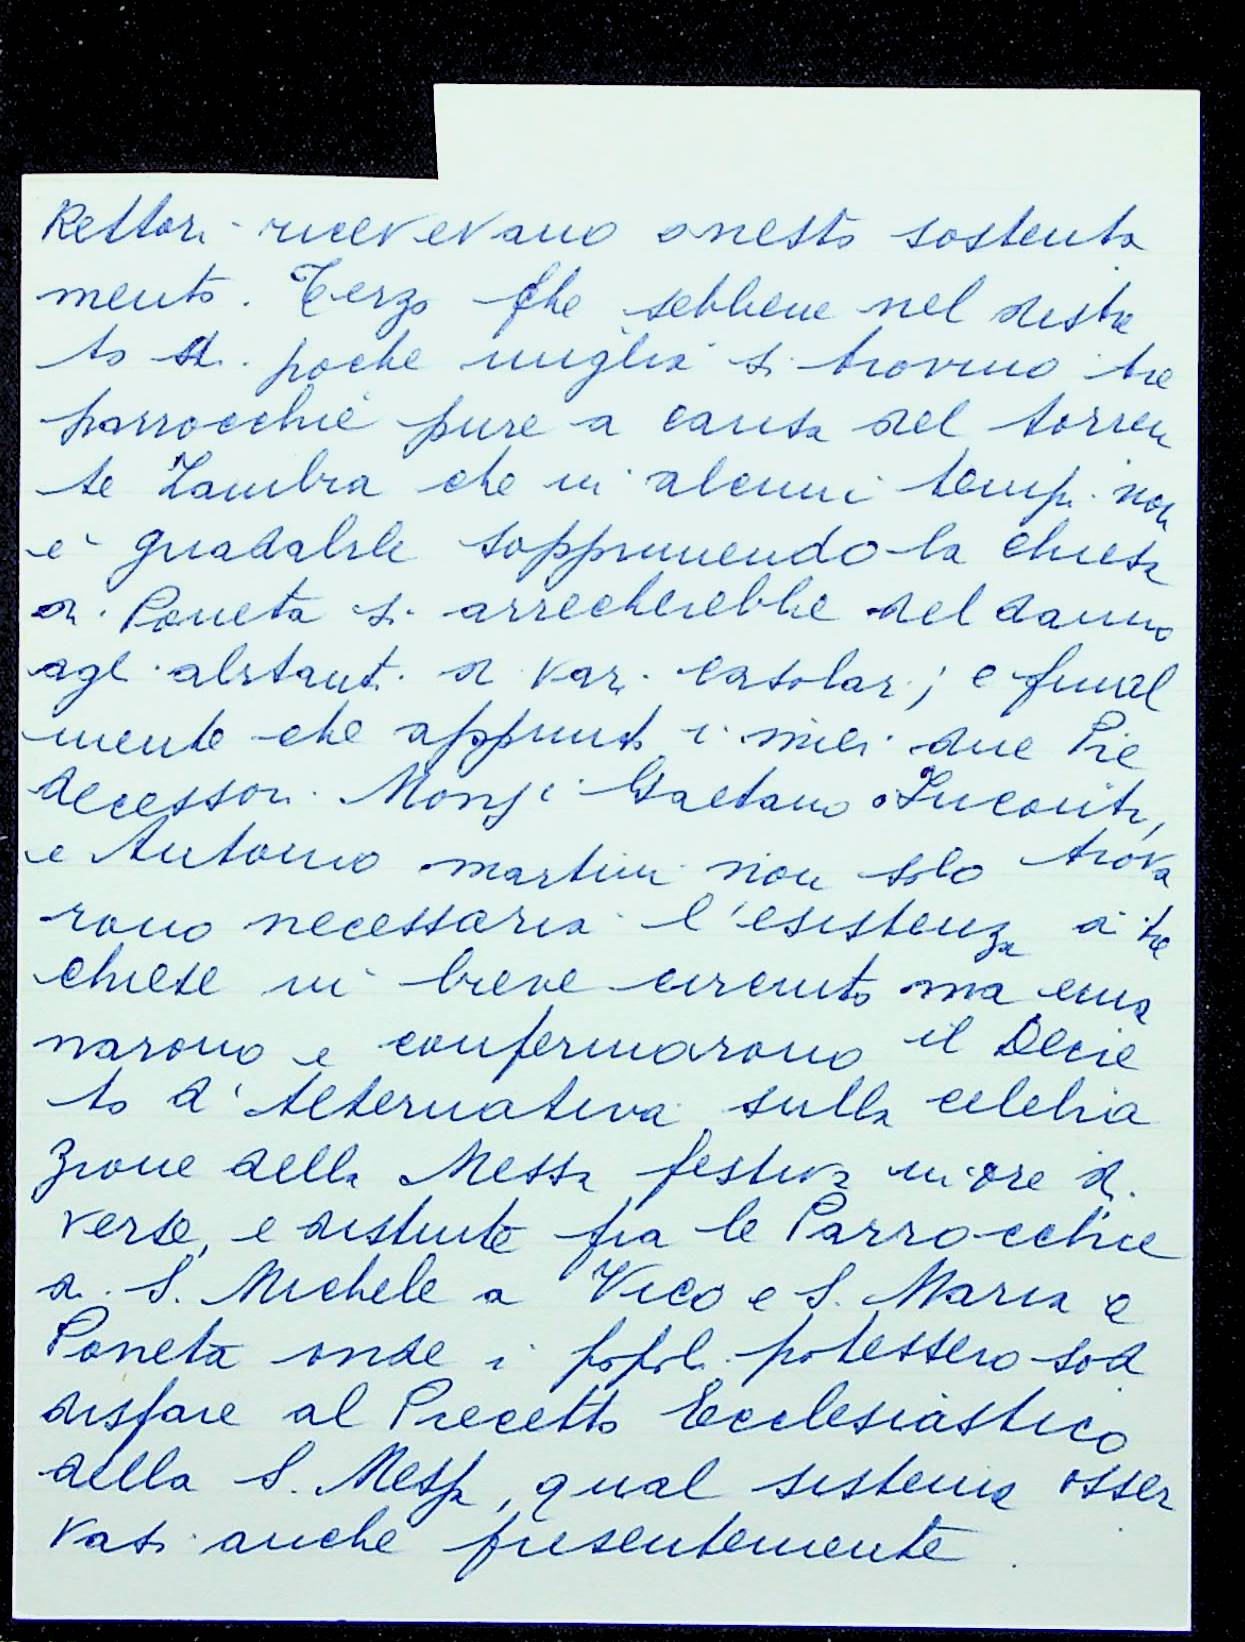 Rettori ricevevano onesto sostenta
mento. Terzo che sebbene nel distret
to di poche miglia si trovino tre
parrocchie pure a causa del torren
te Zambra che in alcuni tempi non
è guadabile sopprimendo la chiesa
di Poneta si arrecherebbe del danno
agli abitanti di vari casolari; e final
mente che appunto i miei due Pre
decessori Monsi Gaetano Incontri,
e Antonio Martini non solo trova
rono necessaria l'esistenza di tre
chiese in breve circuito ma ema
narono e confermarono il Decre
to d'Alternativa sulla celebra
zione della Messa festiva in ore di
verse, e distinte fra le Parrocchie
di S. Michele a Vico e S. Maria a
Poneta onde i popoli potessero sod
disfare al Precetto Ecclesiastico
della S. Messa, qual sistema osser
vasi anche presentemente.